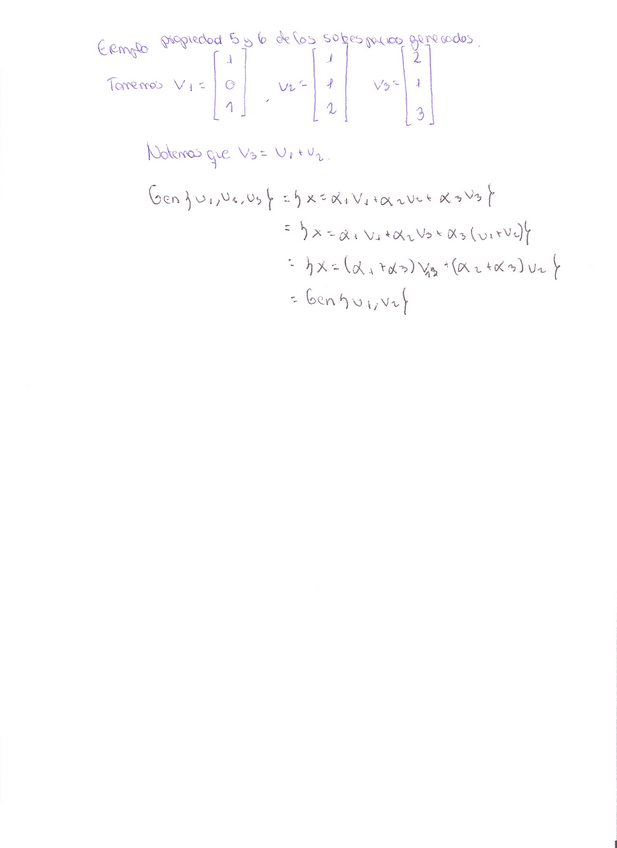 Ejemplo propiedad 5 y 6 de los subespacios generados.
Tomemos v₁ = [1 0 1], v₂ = [1 1 2] v₃ = [2 1 3]
Notemos que v₃ = v₁ + v₂.
Gen{v₁, v₂, v₃} = {x = α₁v₁ + α₂v₂ + α₃v₃}
= {x = α₁v₁ + α₂v₃ + α₃(v₁+v₂)}
= {x = (α₁ + α₃) v₁ + (α₂ + α₃) v₂}
= Gen{v₁, v₂}